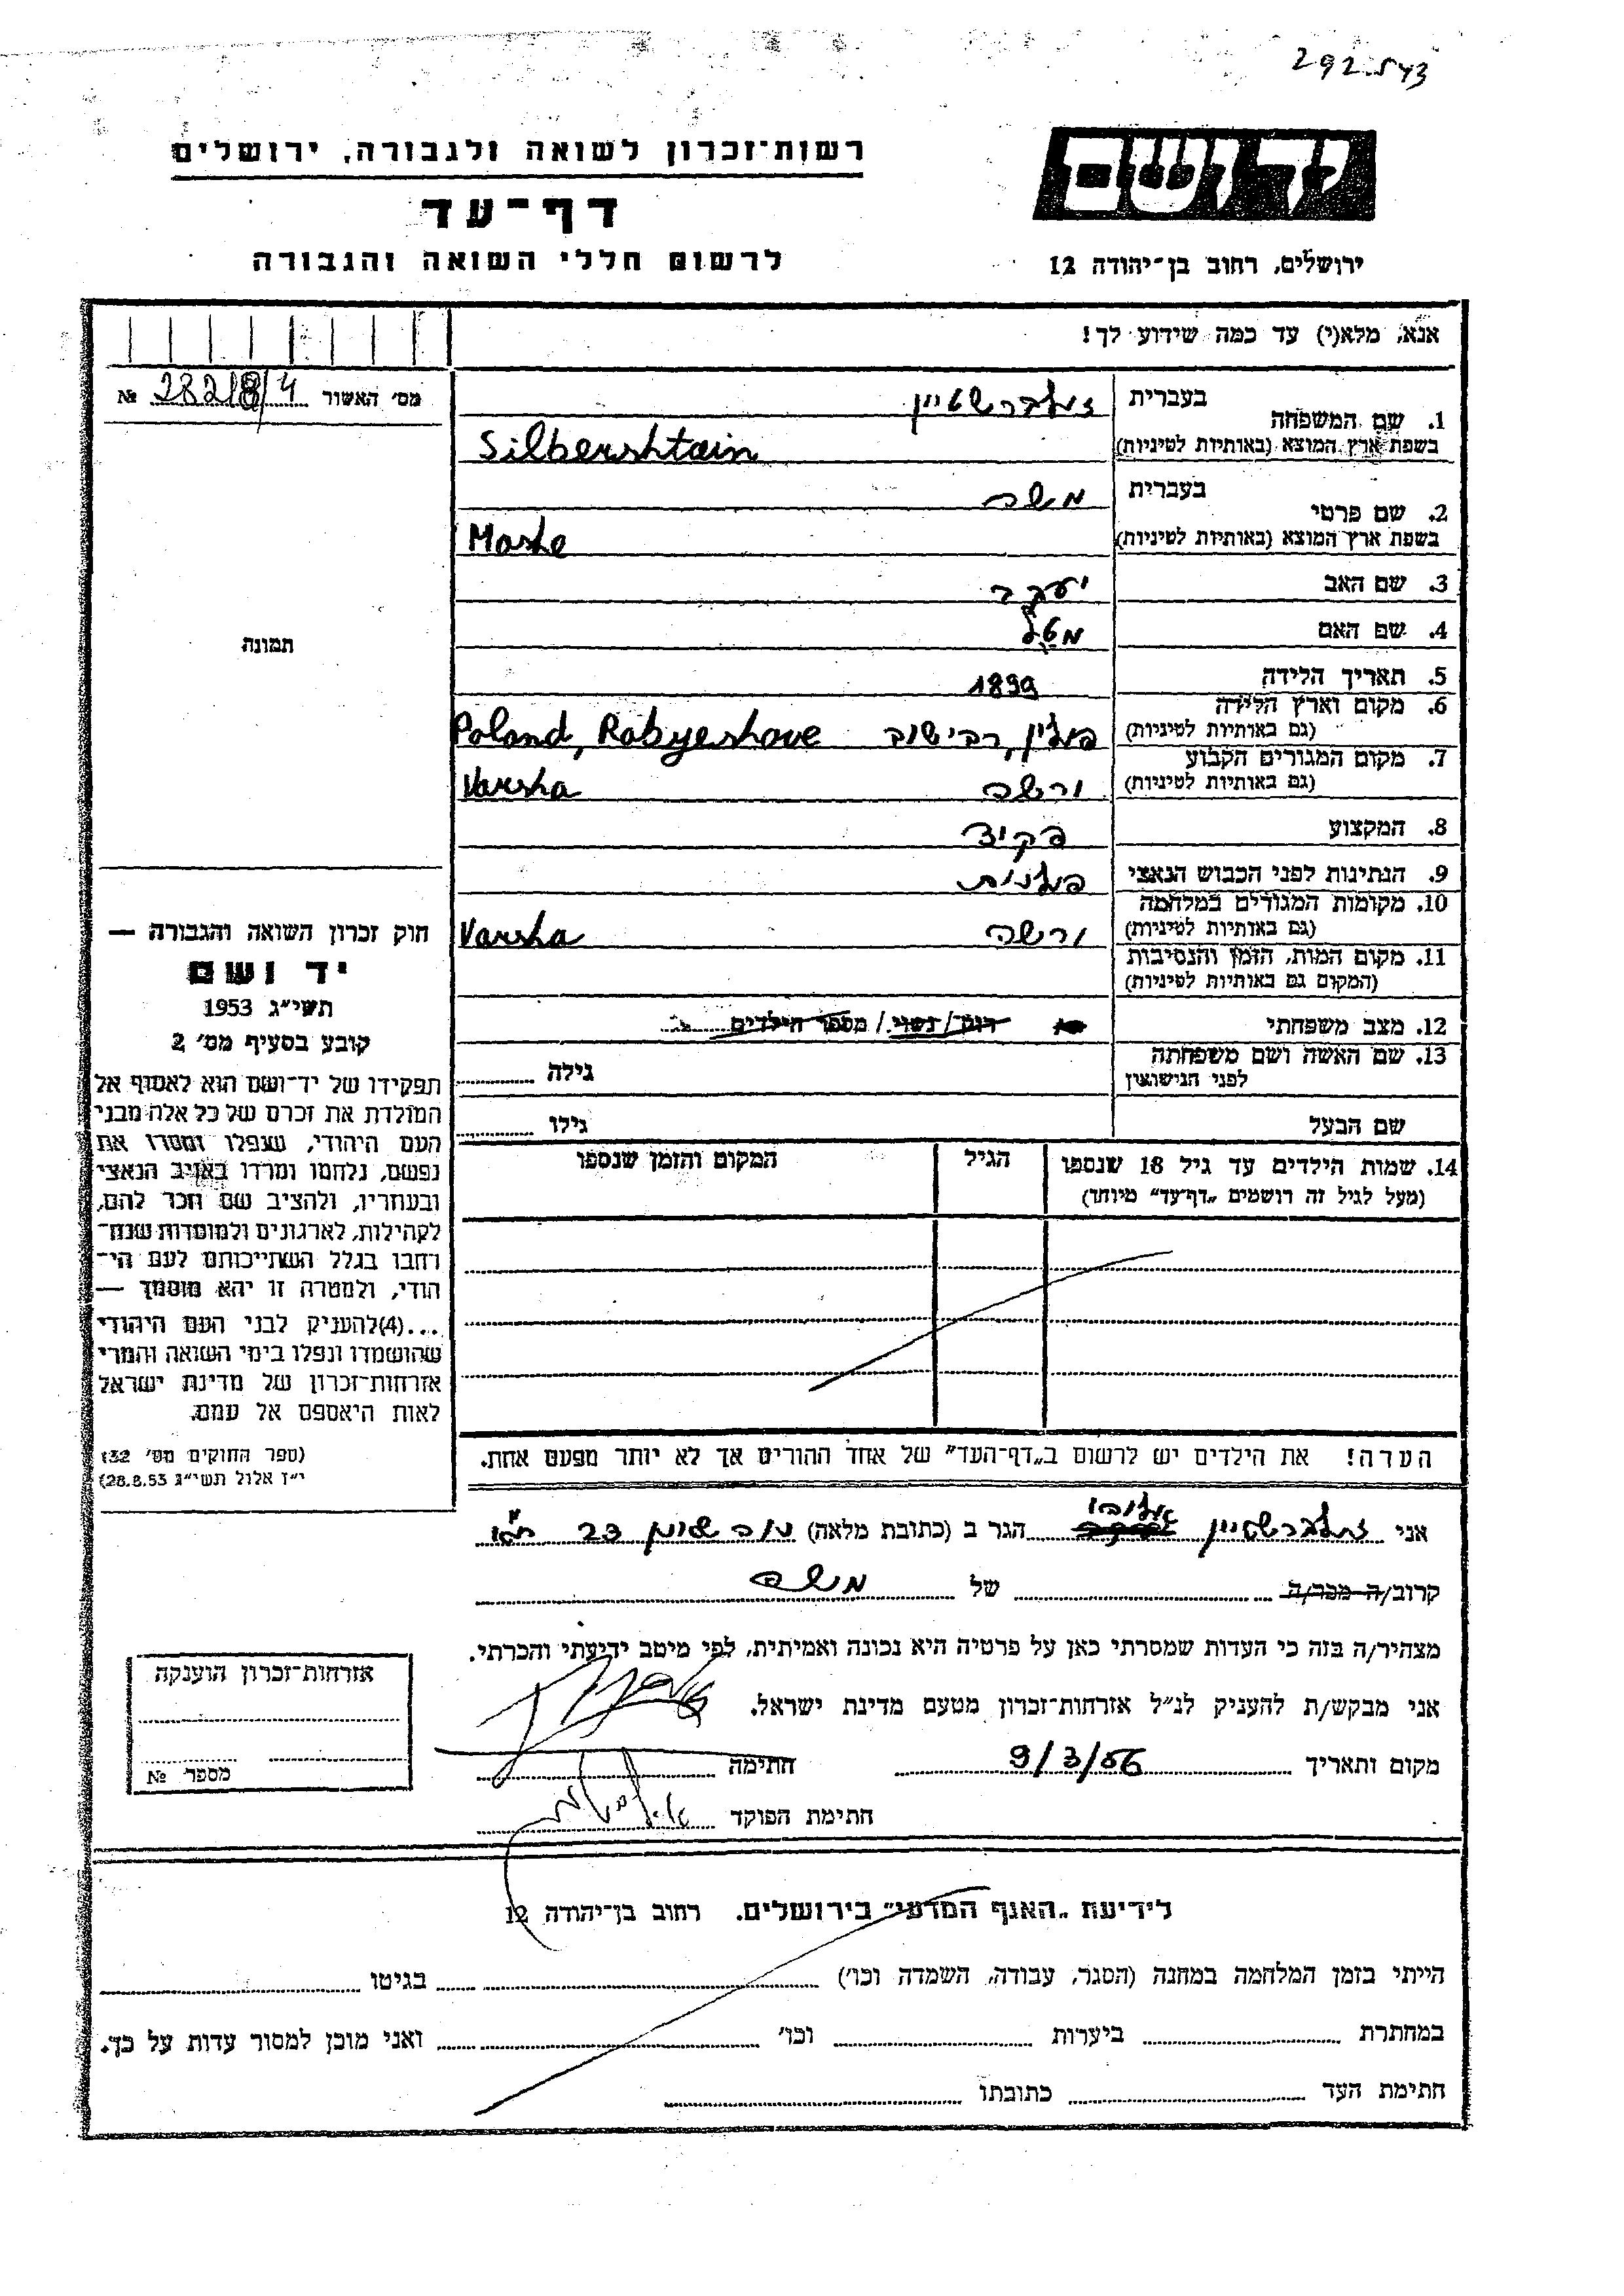 292
רשות־זכרון לשואה ולגבורה, ירושלים
דף־עד
לרשום חללי השואה והגבורה
יד ושם
ירושלים, רחוב בן־יהודה 12
אנא, מלא(י) עד כמה שידוע לך!
מס׳ האשור 28218/4 №
1. שם המשפחה בעברית זילברשטיין
בשפת ארץ המוצא (באותיות לטיניות) Silbershtain
2. שם פרטי בעברית משה
בשפת ארץ המוצא (באותיות לטיניות) Moshe
3. שם האב יעקב
4. שם האם
5. תאריך הלידה 1899
6. מקום וארץ הלידה פולין, רבישוב Poland, Robyeshove
(גם באותיות לטיניות)
7. מקום המגורים הקבוע ורשה Varsha
(גם באותיות לטיניות)
8. המקצוע פקיד
9. הנתינות לפני הכבוש הנאצי פולנית
10. מקומות המגורים במלחמה ורשה Varsha
(גם באותיות לטיניות)
11. מקום המות, הזמן והנסיבות
(המקום גם באותיות לטיניות)
12. מצב משפחתי רוק/נשוי/מספר הילדים
13. שם האשה ושם משפחתה
לפני הנישואין
גילה
שם הבעל
גילו
14. שמות הילדים עד גיל 18 שנספו
(מעל לגיל זה רושמים „דף־עד" מיוחד)
הגיל
המקום והזמן שנספו
הערה! את הילדים יש לרשום ב„דף־העד" של אחד ההורים אך לא יותר מפעם אחת.
תמונה
חוק זכרון השואה והגבורה —
יד ושם
תשי״ג 1953
קובע בסעיף מס׳ 2
תפקידו של יד־ושם הוא לאסוף אל
המולדת את זכרם של כל אלה מבני
העם היהודי, שנפלו ומסרו את
נפשם, נלחמו ומרדו באויב הנאצי
ובעוזריו, ולהציב שם וזכר להם,
לקהילות, לארגונים ולמוסדות שנח־
רבו בגלל השתייכותם לעם הי־
הודי, ולמטרה זו יהא מוסמך —
...(4)להעניק לבני העם היהודי
שהושמדו ונפלו בימי השואה והמרי
אזרחות־זכרון של מדינת ישראל
לאות היאספם אל עמם.
(ספר החוקים מס׳ 132
י״ז אלול תשי״ג 28.8.53)
אני זילברשטיין הגר ב (כתובת מלאה) 23
קרוב/ה מכר/ה של משה
מצהיר/ה בזה כי העדות שמסרתי כאן על פרטיה היא נכונה ואמיתית, לפי מיטב ידיעתי והכרתי.
אני מבקש/ת להעניק לנ״ל אזרחות־זכרון מטעם מדינת ישראל.
מקום ותאריך 9/3/56 חתימה
חתימת הפוקד
אזרחות־זכרון הוענקה
מספר №
לידיעת „האגף המדעי" בירושלים. רחוב בן־יהודה 12
הייתי בזמן המלחמה במחנה (הסגר, עבודה, השמדה וכו׳) בגיטו
במחתרת ביערות וכו׳ ואני מוכן למסור עדות על כך.
חתימת העד כתובתו